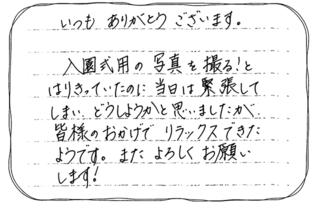 いつも ありがとう ございます。
入園式用の 写真を 撮る!と
はりきっていたのに 当日は 緊張して
しまい、どうしようかと思いましたが、
皆様のおかげで リラックスできた
ようです。また よろしく お願い
します!